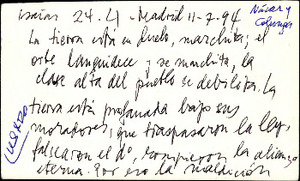 isaías 24.4 - Madrid 11-7-94
Núcar y
La tierra está en duelo, marchita; el
orbe languidece y se marchita, la
clase alta del pueblo se debilita. La
tierra está profanada bajo sus
moradores, que traspasaron la ley,
falsearon el dº, rompieron la alianza
eterna. Por eso la maldición